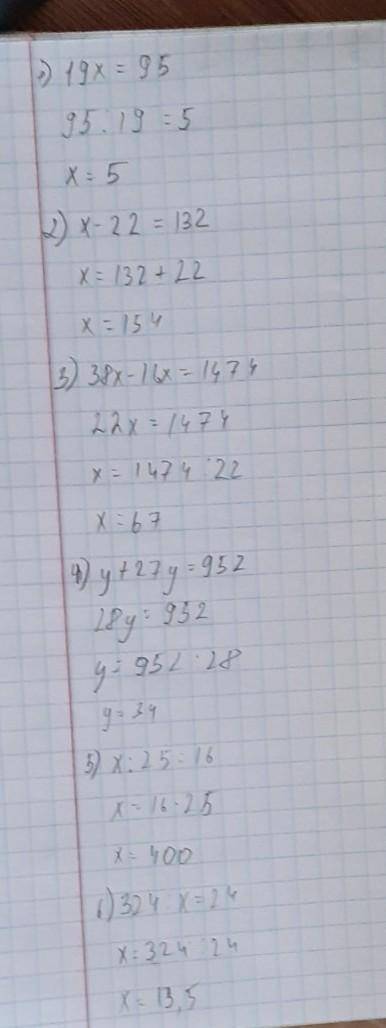 1) 19x = 95
95 : 19 = 5
x = 5
2) x - 22 = 132
x = 132 + 22
x = 154
3) 38x - 16x = 1474
22x = 1474
x = 1474 : 22
x = 67
4) y + 27y = 952
28y = 952
y = 952 : 28
y = 34
5) x : 25 = 16
x = 16 · 25
x = 400
6) 324 : x = 24
x = 324 : 24
x = 13,5